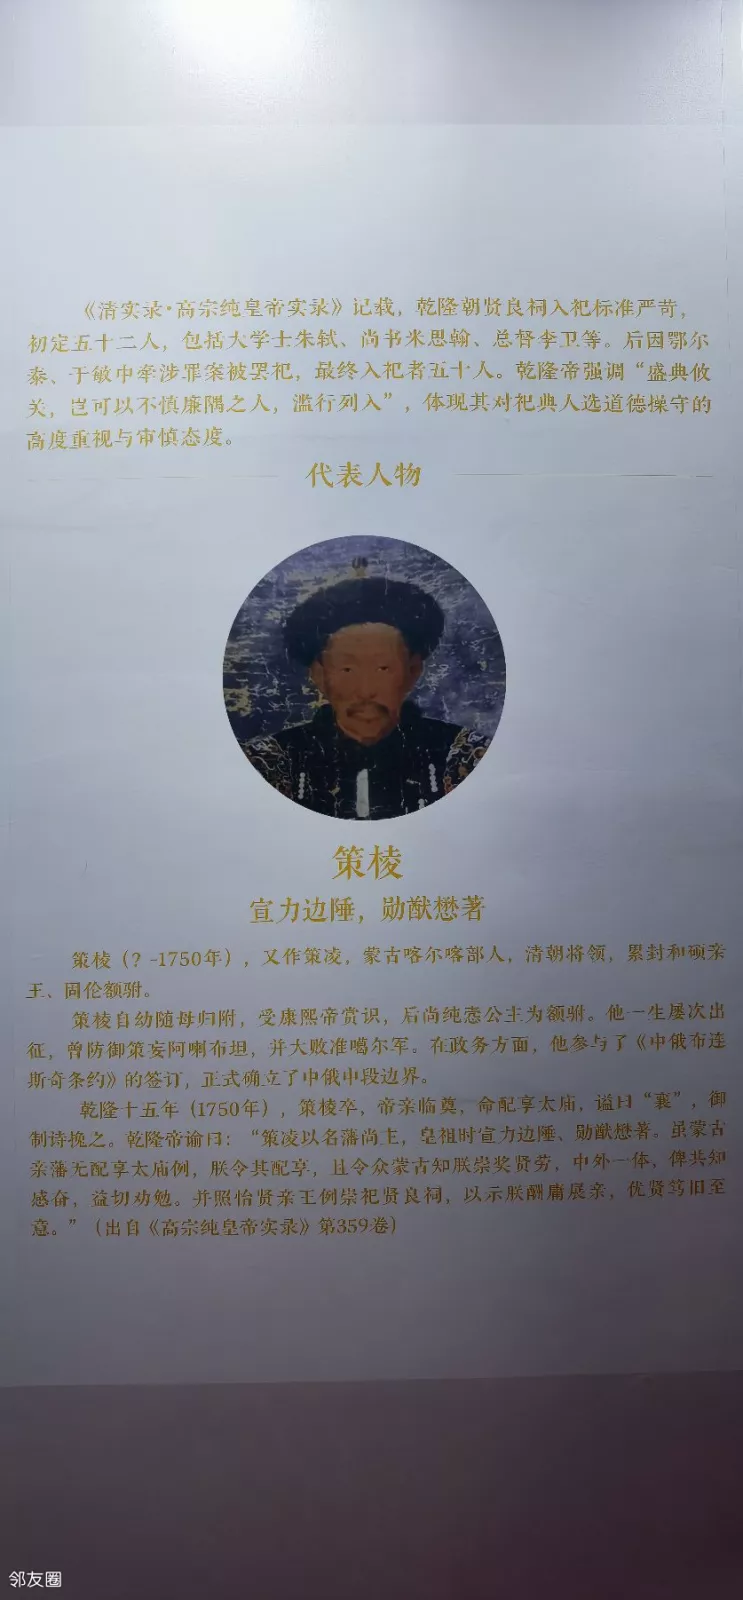 《清实录·高宗纯皇帝实录》记载，乾隆朝贤良祠入祀标准严苛，
初定五十二人，包括大学士朱轼、尚书米思翰、总督李卫等。后因鄂尔
泰、于敏中牵涉罪案被罢祀，最终入祀者五十人。乾隆帝强调“盛典攸
关，岂可以不慎廉隅之人，滥行列入”，体现其对祀典人选道德操守的
高度重视与审慎态度。
代表人物
策棱
宣力边陲，勋猷懋著
策棱（？-1750年），又作策凌，蒙古喀尔喀部人，清朝将领，累封和硕亲
王、固伦额驸。
策棱自幼随母归附，受康熙帝赏识，后尚纯悫公主为额驸。他一生屡次出
征，曾防御策妄阿喇布坦，并大败准噶尔军。在政务方面，他参与了《中俄布连
斯奇条约》的签订，正式确立了中俄中段边界。
乾隆十五年（1750年），策棱卒，帝亲临奠，命配享太庙，谥曰“襄”，御
制诗挽之。乾隆帝谕曰：“策凌以名藩尚主，皇祖时宣力边陲、勋猷懋著。虽蒙古
亲藩无配享太庙例，朕令其配享，且令众蒙古知朕崇奖贤劳，中外一体，俾共知
感奋，益切劝勉。并照怡贤亲王例崇祀贤良祠，以示朕酬庸展亲，优贤笃旧至
意。”（出自《高宗纯皇帝实录》第359卷）
邻友圈